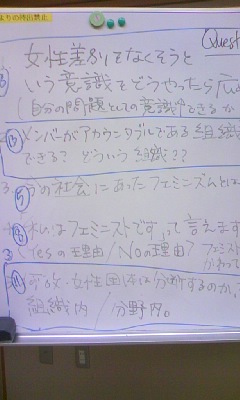 よりの持出禁止
Quest
女性差別をなくそうと
いう意識をどうやったら広
(自分の問題としての意識)できるか
メンバーがアカウンタブルである組織
できる? どういう組織??
3. 今の社会にあったフェミニズムとは
⑤
私はフェミニストです、って言えます
(Yesの理由/Noの理由? フェミスト
かわって
女性団体は分断するのか
組織内/分野内。